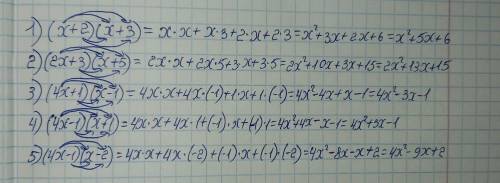 1) (x+2)(x+3) = x·x+x·3+2·x+2·3=x²+3x+2x+6=x²+5x+6
2) (2x+3)(x+5) = 2x·x+2x·5+3x+3·5=2x²+10x+3x+15=2x²+13x+15
3) (4x+1)(x-1)=4x·x+4x·(-1)+1·x+1·(-1)=4x²-4x+x-1=4x²-3x-1
4) (4x-1)(x+1)=4x·x+4x·1+(-1)·x+(-1)·1=4x²+4x-x-1=4x²+3x-1
5) (4x-1)(x-2)=4x·x+4x·(-2)+(-1)·x+(-1)·(-2)=4x²-8x-x+2=4x²-9x+2